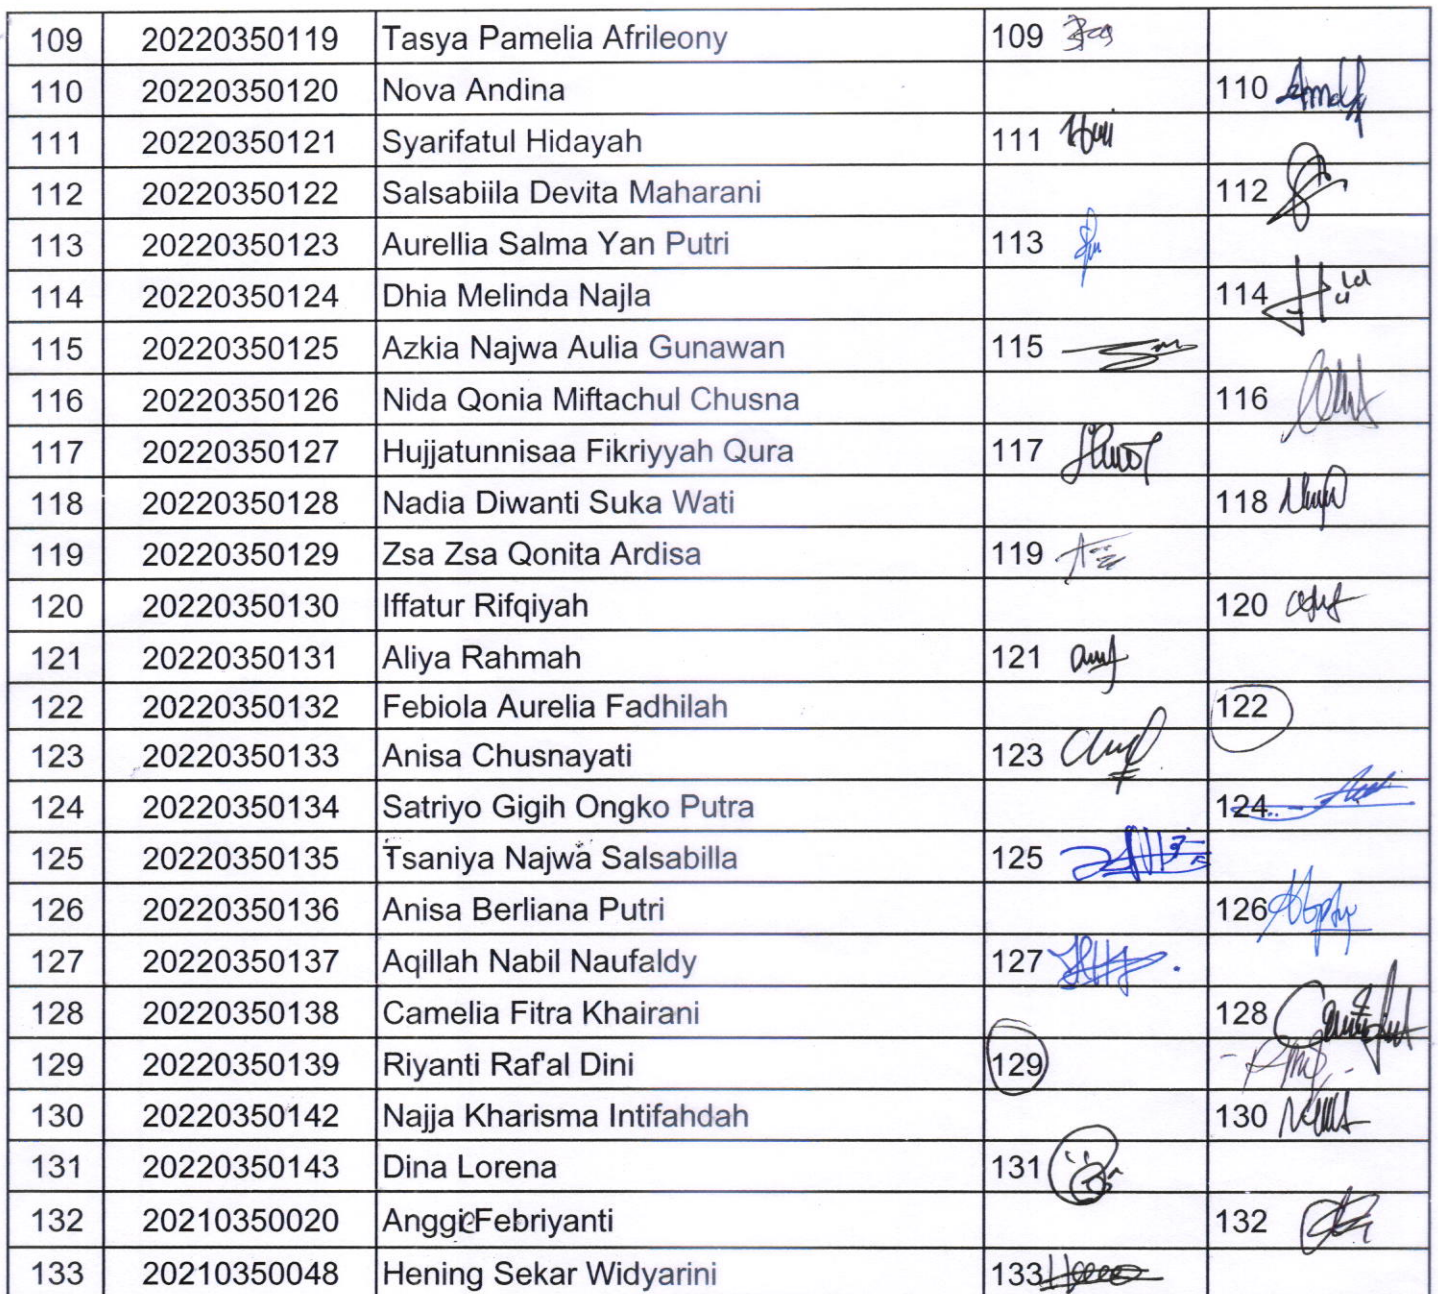 109 20220350119 Tasya Pamelia Afrileony 109
110 20220350120 Nova Andina 110
111 20220350121 Syarifatul Hidayah 111
112 20220350122 Salsabiila Devita Maharani 112
113 20220350123 Aurellia Salma Yan Putri 113
114 20220350124 Dhia Melinda Najla 114
115 20220350125 Azkia Najwa Aulia Gunawan 115
116 20220350126 Nida Qonia Miftachul Chusna 116
117 20220350127 Hujjatunnisaa Fikriyyah Qura 117
118 20220350128 Nadia Diwanti Suka Wati 118
119 20220350129 Zsa Zsa Qonita Ardisa 119
120 20220350130 Iffatur Rifqiyah 120
121 20220350131 Aliya Rahmah 121
122 20220350132 Febiola Aurelia Fadhilah 122
123 20220350133 Anisa Chusnayati 123
124 20220350134 Satriyo Gigih Ongko Putra 124
125 20220350135 Tsaniya Najwa Salsabilla 125
126 20220350136 Anisa Berliana Putri 126
127 20220350137 Aqillah Nabil Naufaldy 127
128 20220350138 Camelia Fitra Khairani 128
129 20220350139 Riyanti Raf'al Dini 129
130 20220350142 Najja Kharisma Intifahdah 130
131 20220350143 Dina Lorena 131
132 20210350020 Anggi Febriyanti 132
133 20210350048 Hening Sekar Widyarini 133